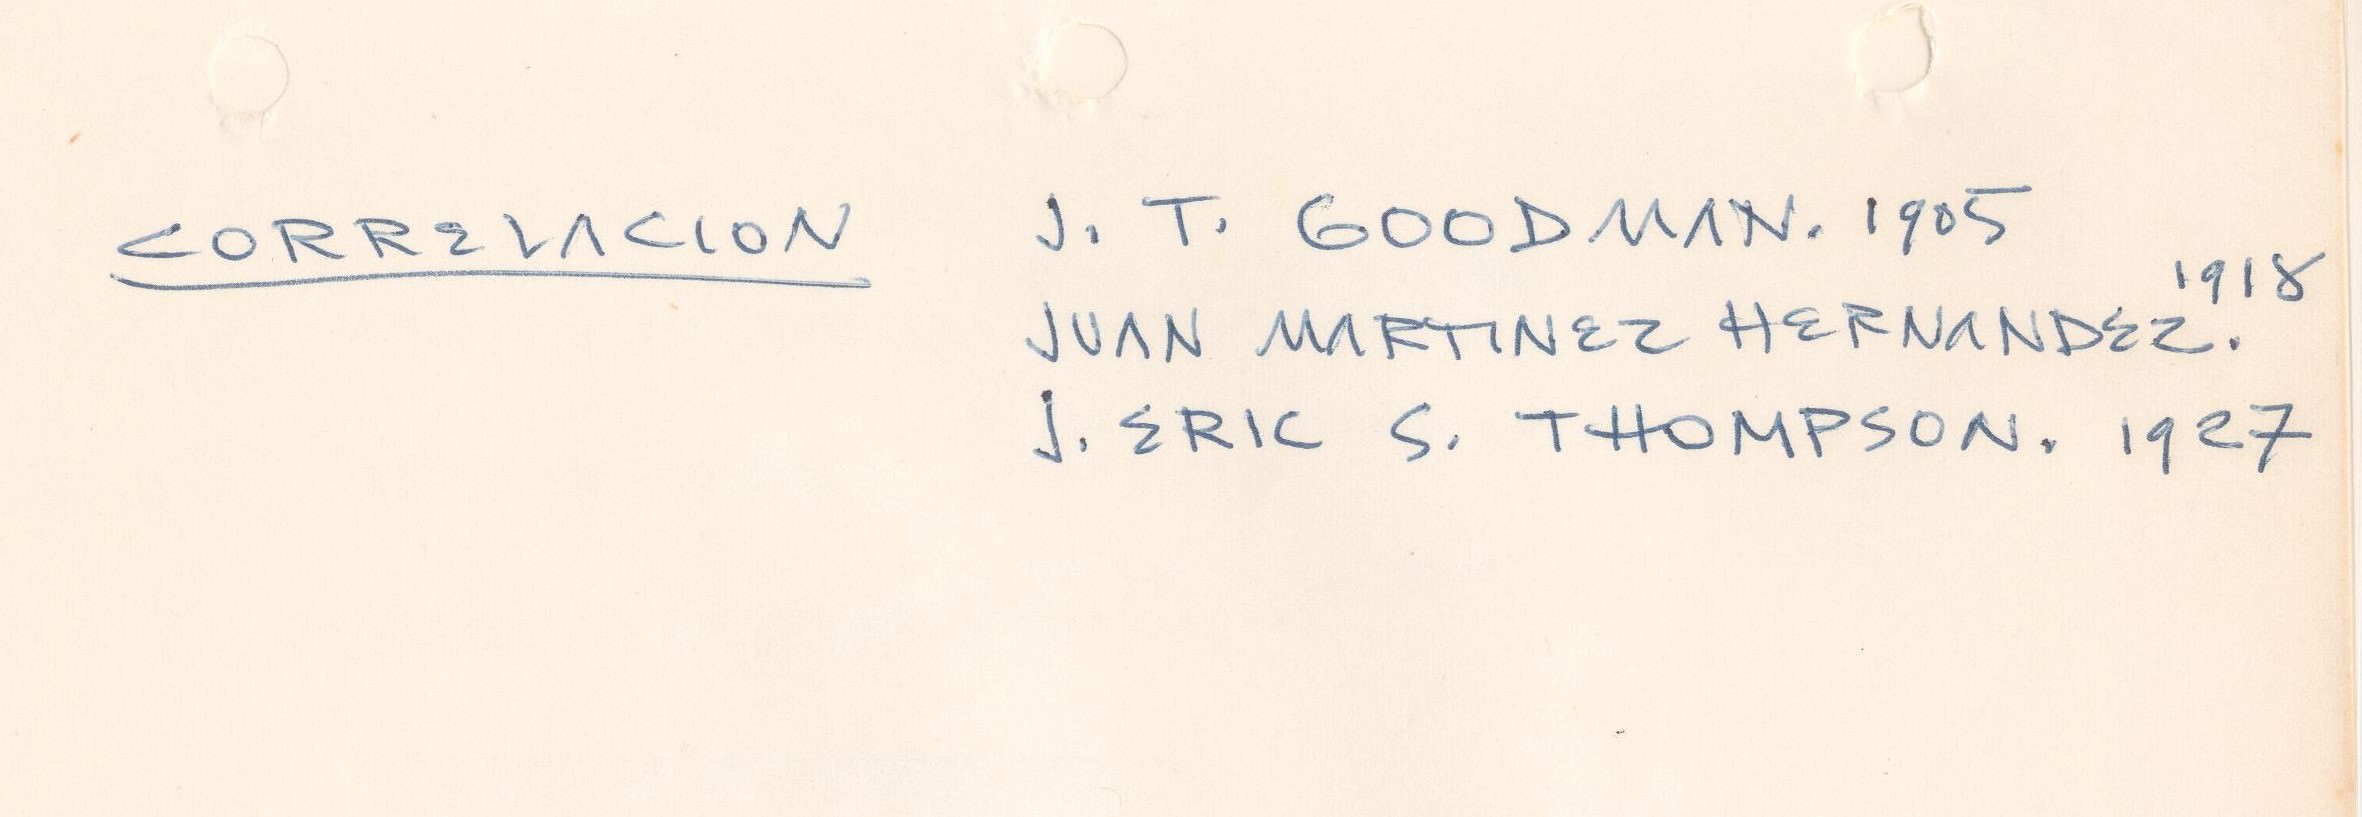 CORRELACION J. T. GOODMAN. 1905
1918
JUAN MARTINEZ HERNANDEZ.
J. ERIC S. THOMPSON. 1927